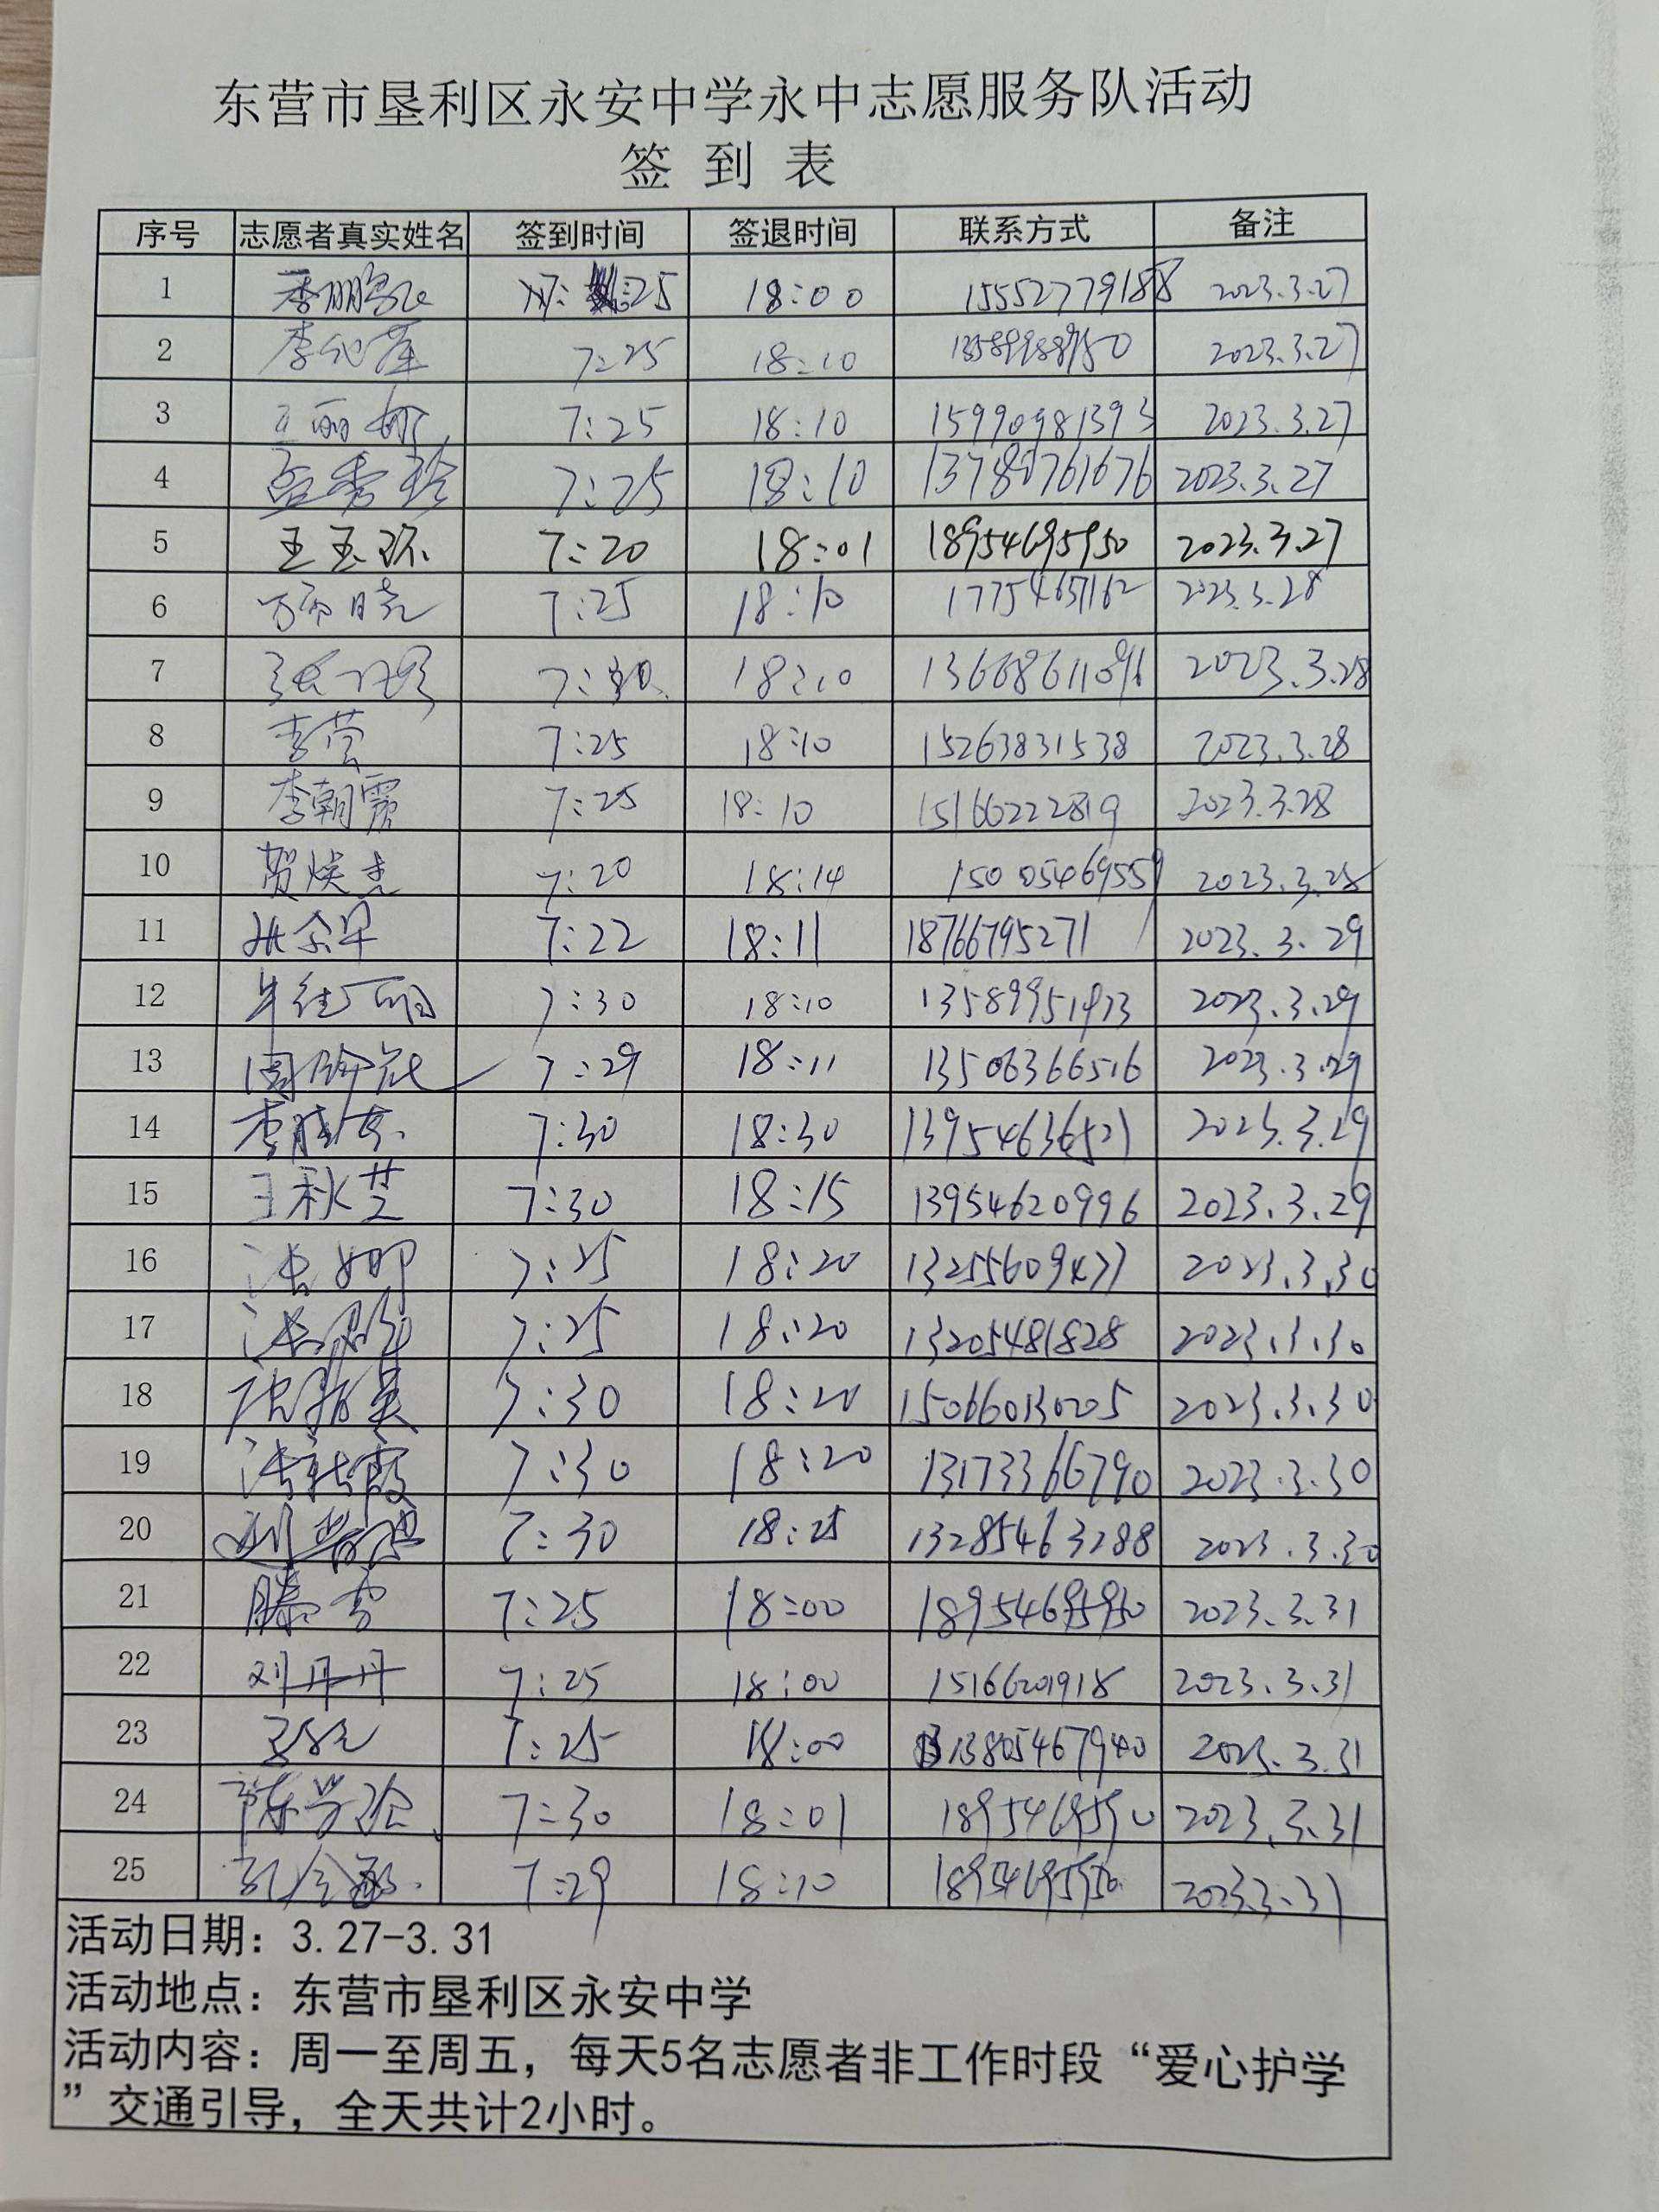 东营市垦利区永安中学永中志愿服务队活动
签 到 表
序号 志愿者真实姓名 签到时间 签退时间 联系方式 备注
1 李鹏飞 7:25 18:00 15552779188 2023.3.27
2 7:25 18:10 2023.3.27
3 王丽娜 7:25 18:10 15990981393 2023.3.27
4 孟秀玲 7:25 18:10 2023.3.27
5 王玉环 7:20 18:01 18954695950 2023.3.27
6 7:25 18:10 17754657162 2023.3.28
7 18:10 2023.3.28
8 李莹 7:25 18:10 15263831538 2023.3.28
9 李朝霞 7:25 18:10 15166222819 2023.3.28
10 贺焕杰 7:20 18:14 15005469559 2023.3.28
11 7:22 18:11 18766795271 2023.3.29
12 7:30 18:10 2023.3.29
13 7:29 18:11 13506366516 2023.3.29
14 李胜东 7:30 18:30 13954636521 2023.3.29
15 王秋芝 7:30 18:15 13954620996 2023.3.29
16 张娜 7:25 18:20 2023.3.30
17 7:25 18:20 13205481828 2023.3.30
18 7:30 18:20 15066013005 2023.3.30
19 张新霞 7:30 18:20 13173366790 2023.3.30
20 7:30 18:25 13285463288 2023.3.30
21 滕雪 7:25 18:00 18954695950 2023.3.31
22 刘丹丹 7:25 18:00 2023.3.31
23 7:25 18:00 13805467940 2023.3.31
24 陈学珍 7:30 18:01 2023.3.31
25 7:29 18:10 18954695950 2023.3.31
活动日期：3.27-3.31
活动地点：东营市垦利区永安中学
活动内容：周一至周五，每天5名志愿者非工作时段“爱心护学
”交通引导，全天共计2小时。